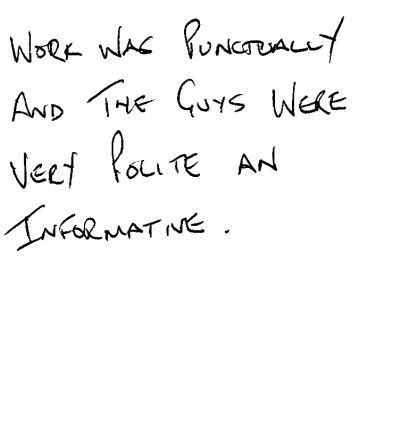 WORK WAS PUNCTUALLY
AND THE GUYS WERE
VERY POLITE AN
INFORMATIVE.